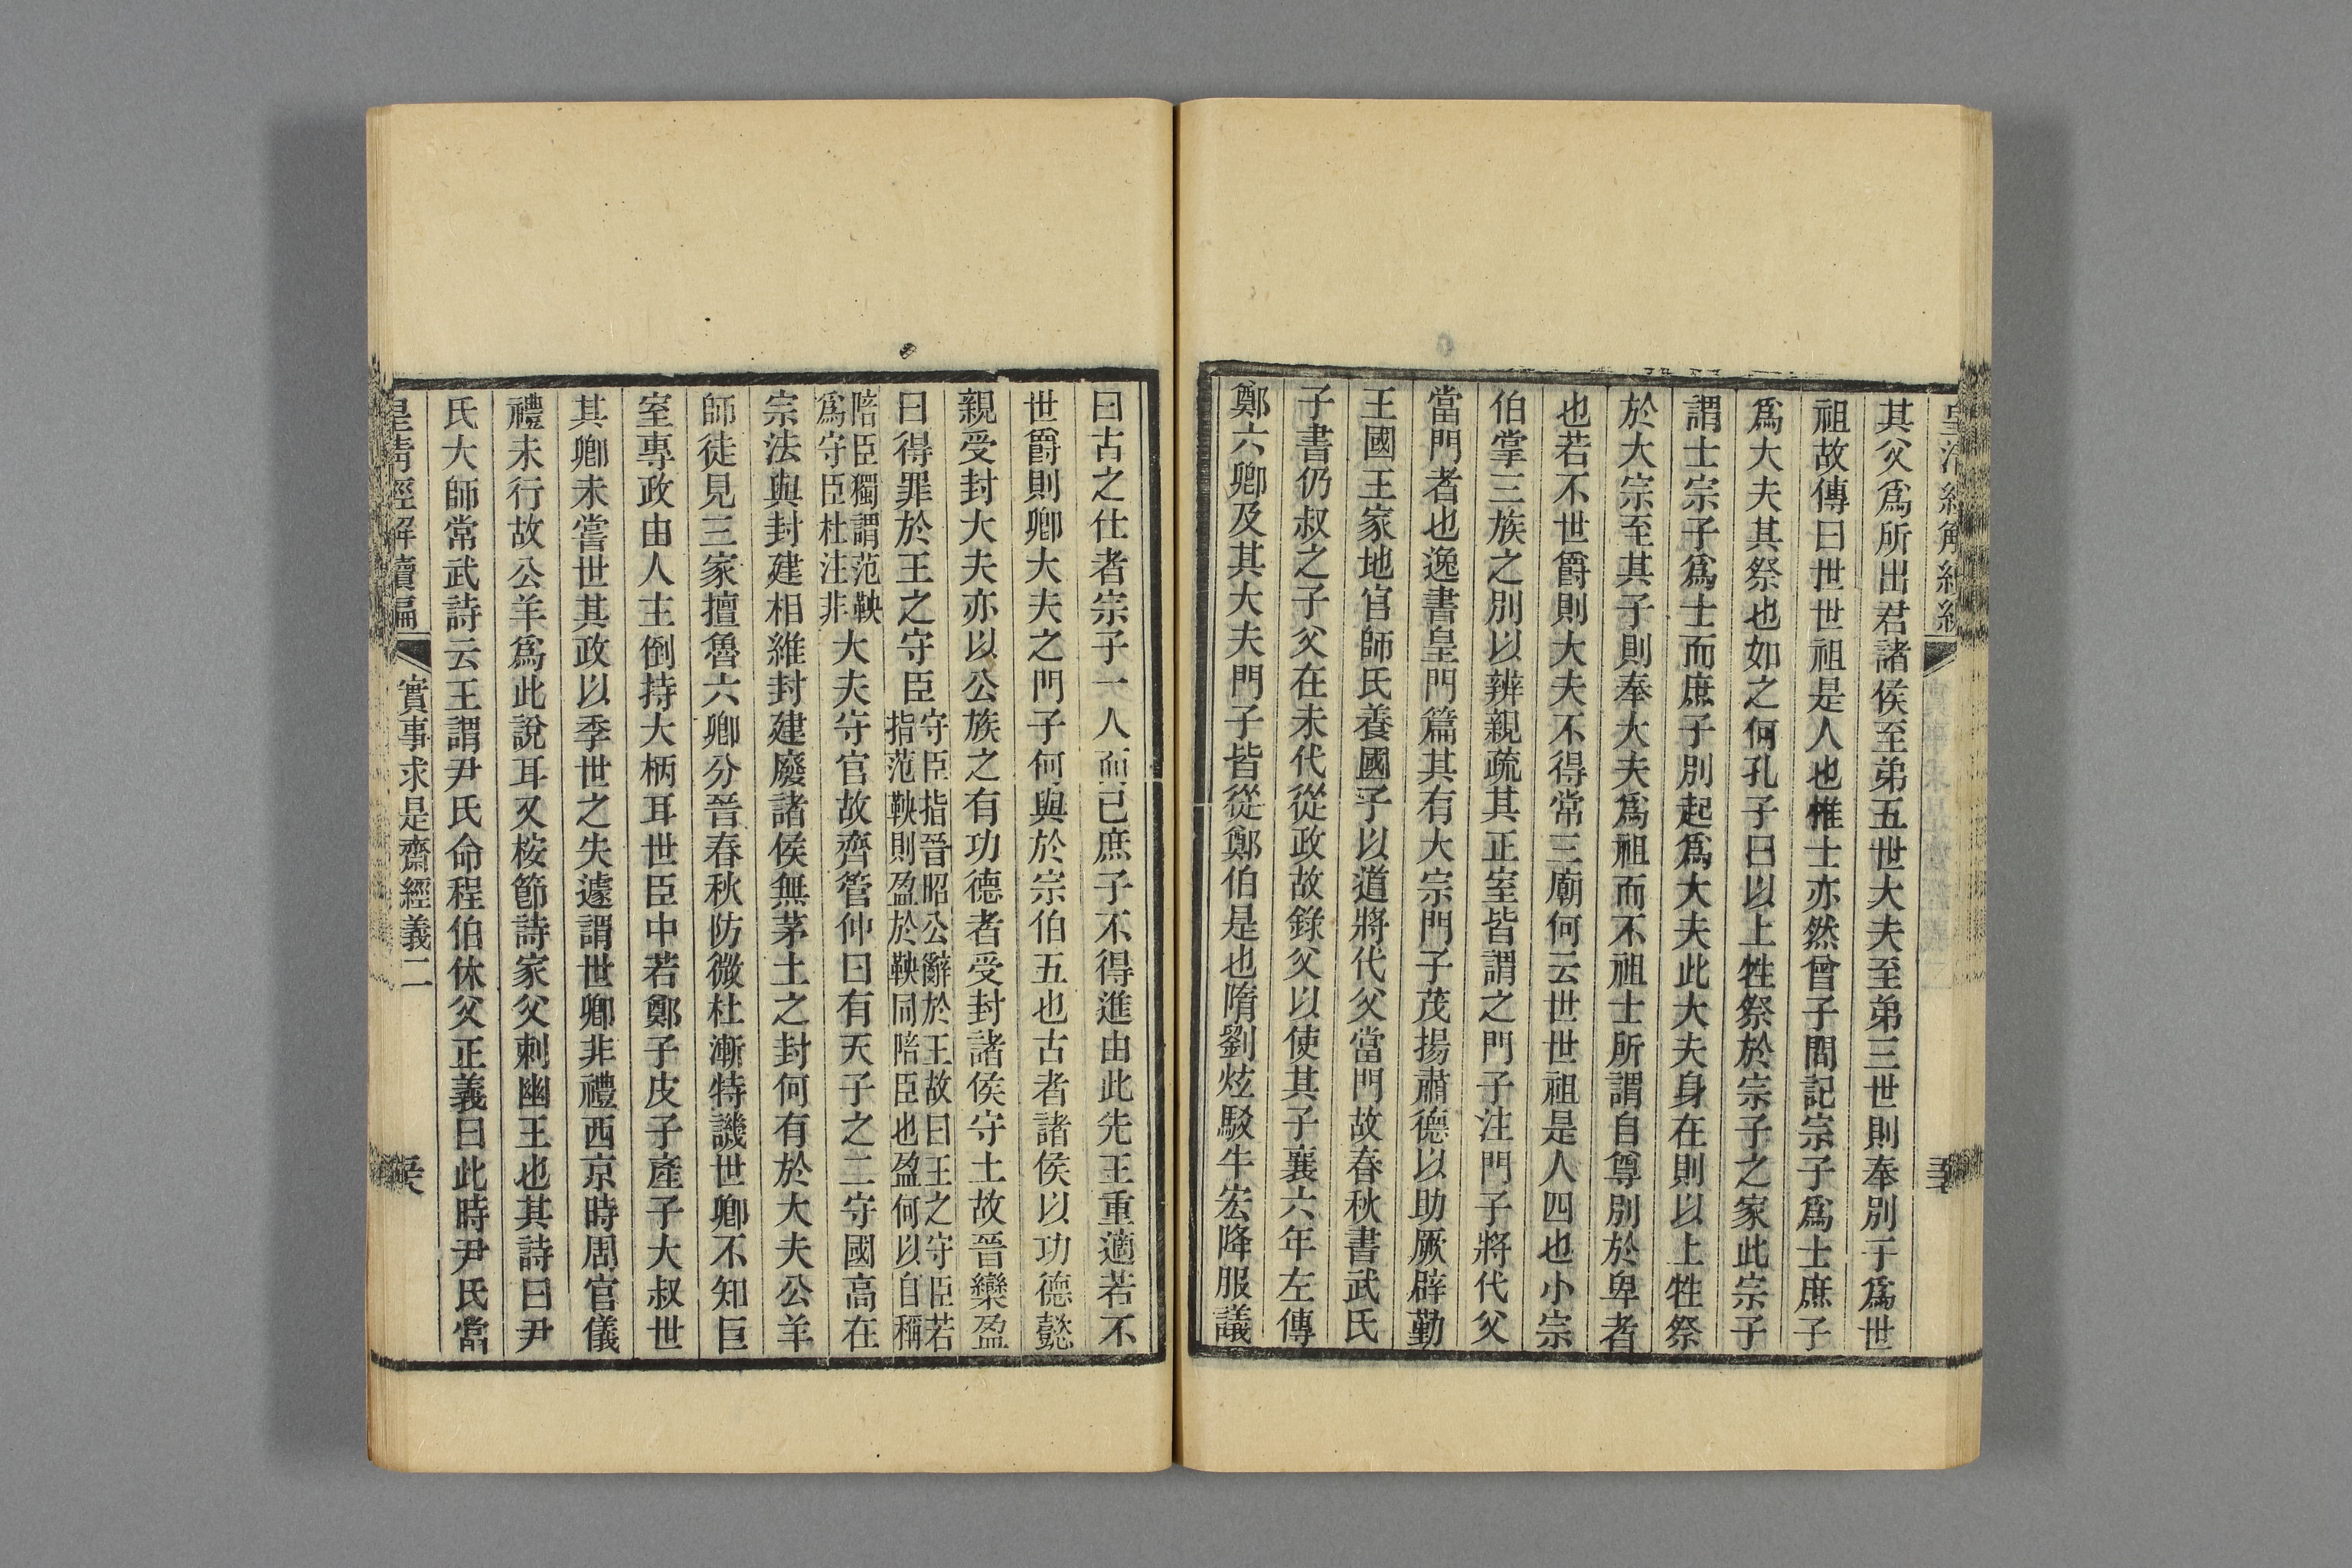 其父爲所出君諸侯至弟五世大夫至弟三世則奉別子爲世
祖故傳曰世世祖是人也惟士亦然曾子問記宗子爲士庶子
爲大夫其祭也如之何孔子曰以上牲祭於宗子之家此宗子
謂士宗子爲士而庶子別起爲大夫此大夫身在則以上牲祭
於大宗至其子則奉大夫爲祖而不祖士所謂自尊別於卑者
也若不世爵則大夫不得常三廟何云世世祖是人四也小宗
伯掌三族之別以辨親疏其正室皆謂之門子注門子將代父
當門者也逸書皇門篇其有大宗門子茂揚肅德以助厥辟勤
王國王家地官師氏養國子以道將代父當門故春秋書武氏
子書仍叔之子父在未代從政故錄父以使其子襄六年左傳
鄭六卿及其大夫門子皆從鄭伯是也隋劉炫駁牛宏降服議
曰古之仕者宗子一人而已庶子不得進由此先王重適若不
世爵則卿大夫之門子何與於宗伯五也古者諸侯以功德懿
親受封大夫亦以公族之有功德者受封諸侯守土故晉欒盈
曰得罪於王之守臣守臣指晉昭公辭於王故曰王之守臣若
指范鞅則盈於鞅同陪臣也盈何以自稱
陪臣獨謂范鞅
爲守臣杜注非大夫守官故齊管仲曰有天子之二守國高在
宗法與封建相維封建廢諸侯無茅土之封何有於大夫公羊
師徒見三家擅魯六卿分晉春秋防微杜漸特譏世卿不知巨
室專政由人主倒持大柄耳世臣中若鄭子皮子產子大叔世
其卿未嘗世其政以季世之失遽謂世卿非禮西京時周官儀
禮未行故公羊爲此說耳又桉節詩家父刺幽王也其詩曰尹
氏大師常武詩云王謂尹氏命程伯休父正義曰此時尹氏當
皇清經解續編 實事求是齋經義二